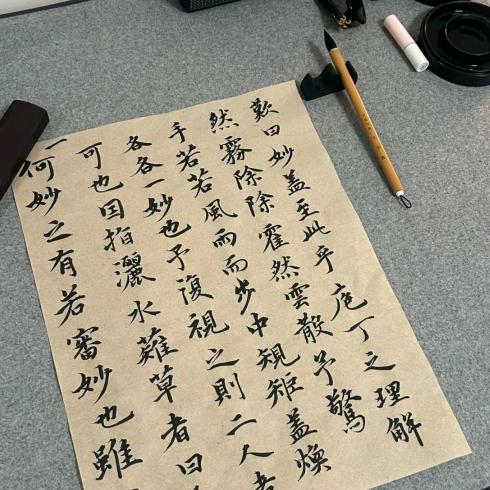 歎曰妙蓋至此乎庖丁之理解
然霧除除霍然雲散予驚
手若若風雨而步中規矩蓋煥
各各一妙也予復視之則二人者
可也因指灑水薙草者曰
一何妙之有若審妙也雖